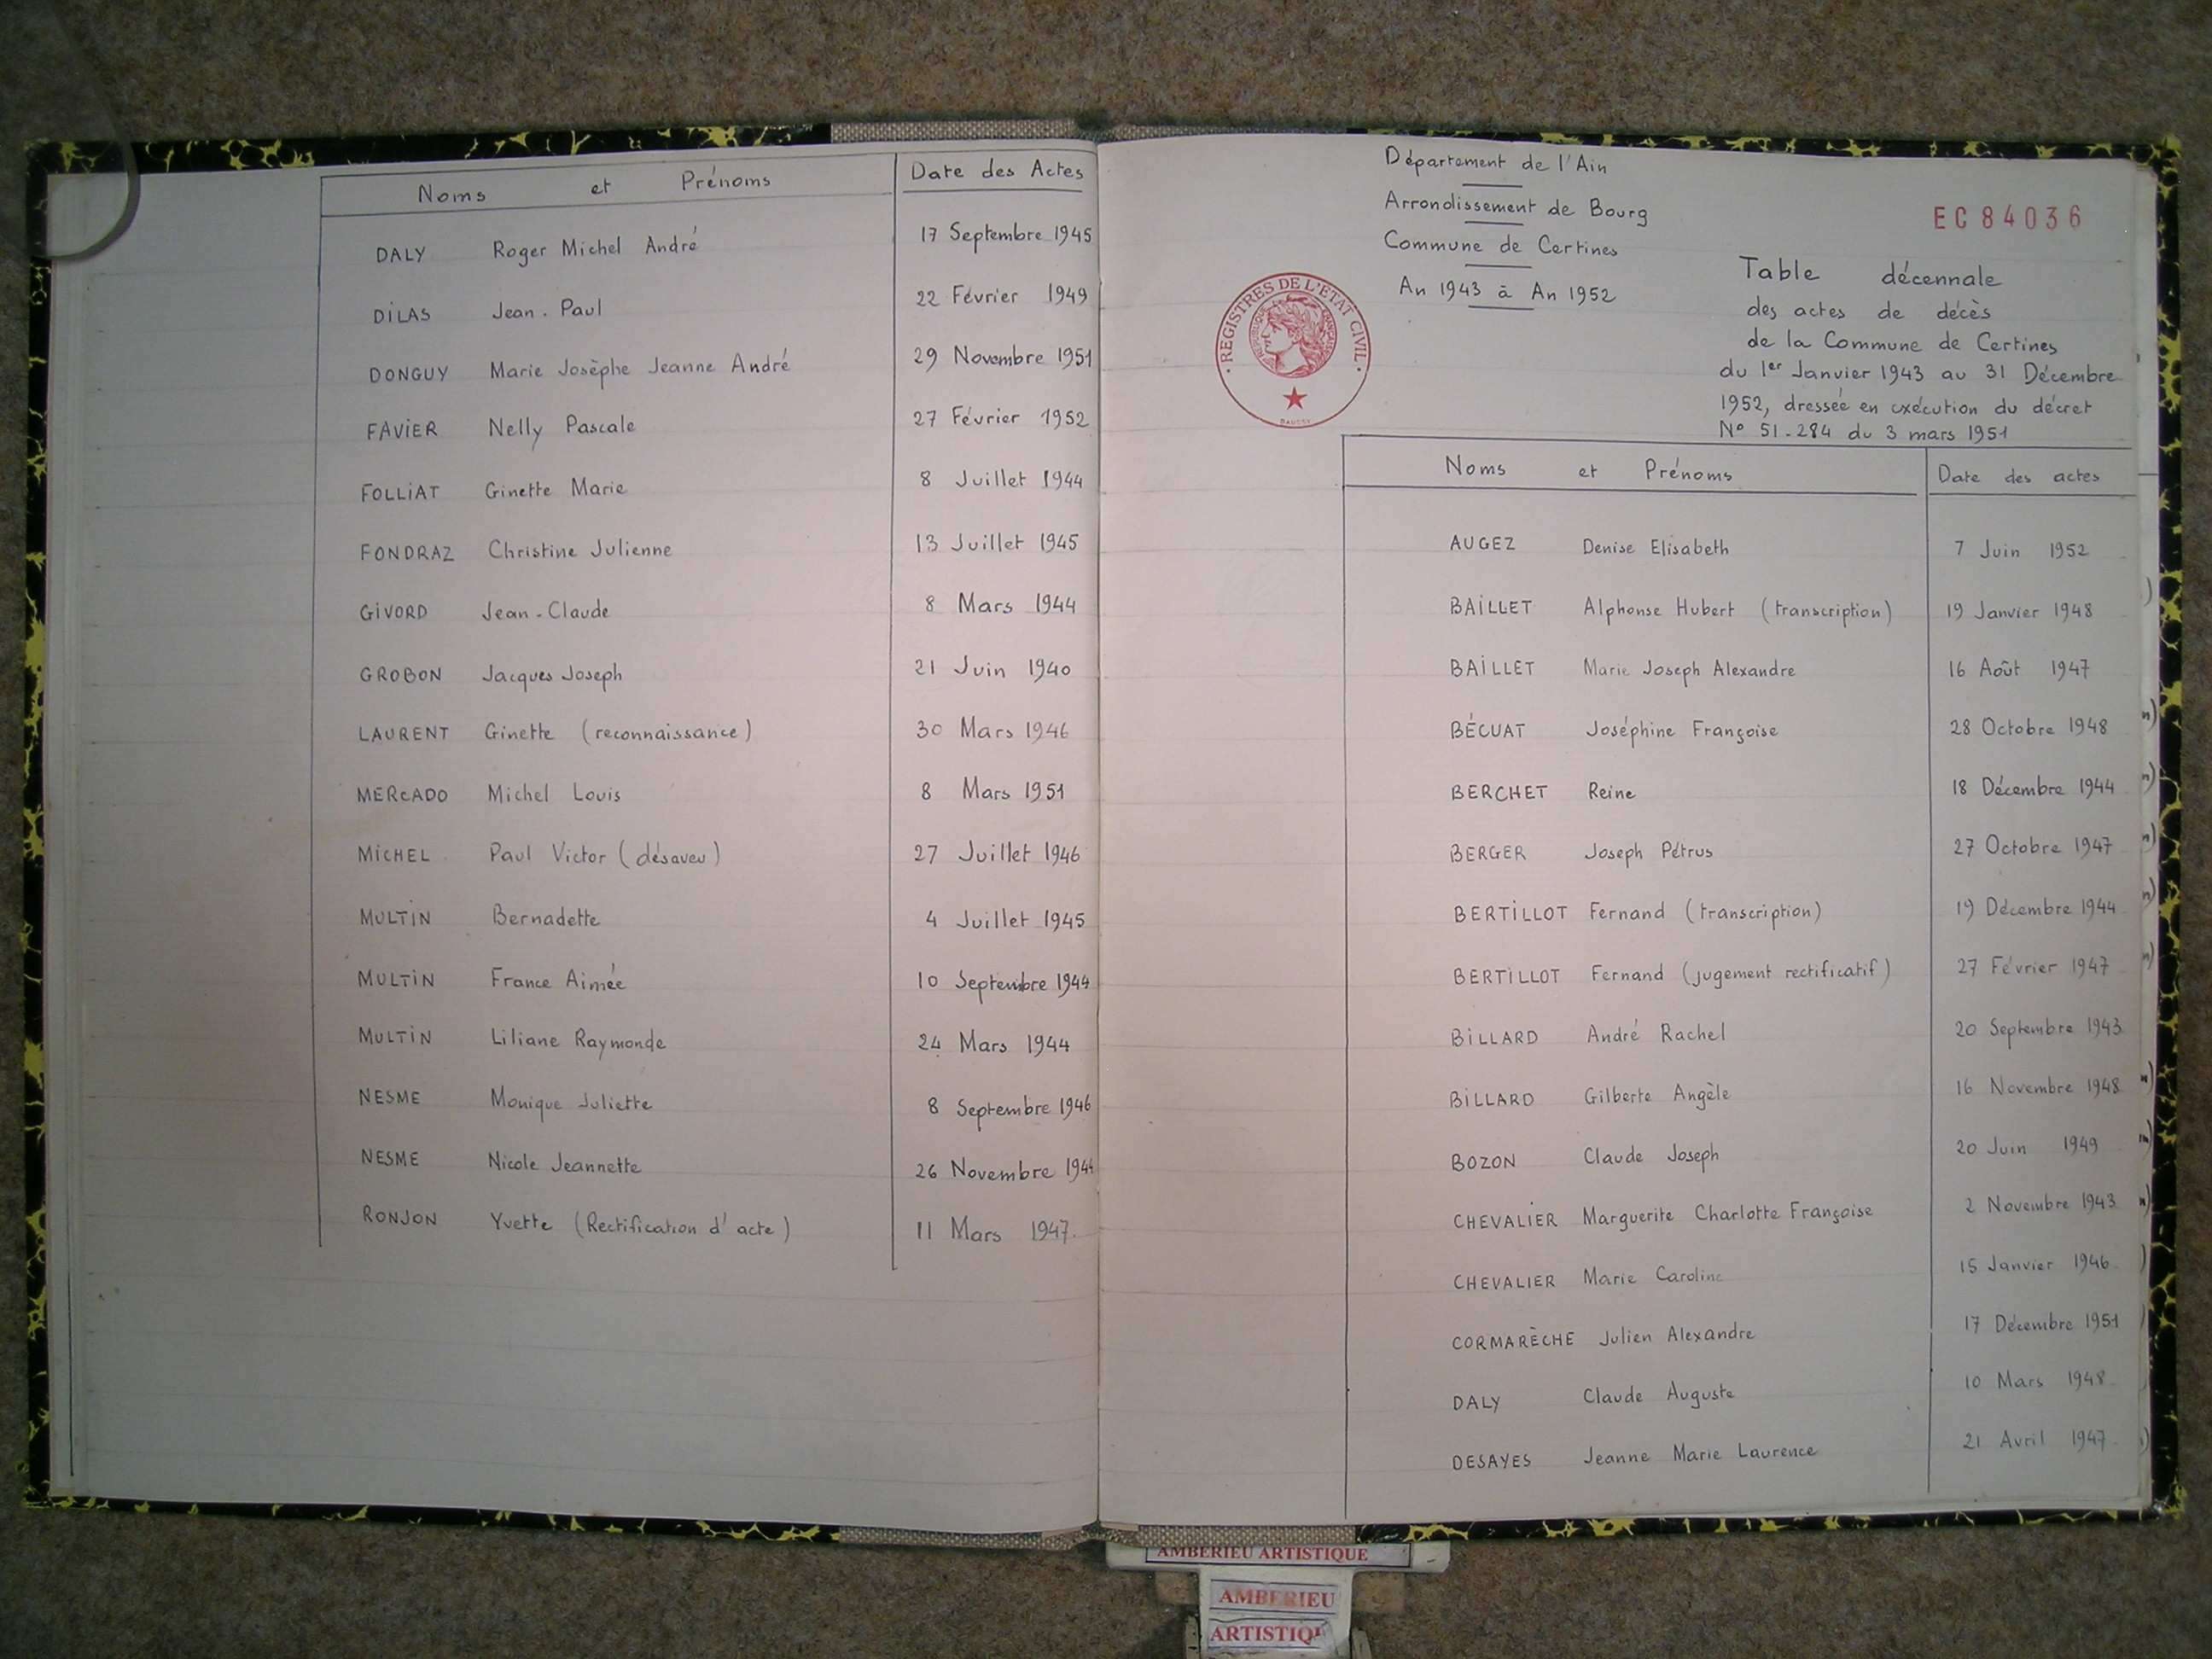 Noms et Prénoms Date des Actes
DALY Roger Michel André 17 Septembre 1945
DILAS Jean. Paul 22 Février 1949
DONGUY Marie Josèphe Jeanne André 29 Novembre 1951
FAVIER Nelly Pascale 27 Février 1952
FOLLIAT Ginette Marie 8 Juillet 1944
FONDRAZ Christine Julienne 13 Juillet 1945
GIVORD Jean-Claude 8 Mars 1944
GROBON Jacques Joseph 21 Juin 1940
LAURENT Ginette (reconnaissance) 30 Mars 1946
MERCADO Michel Louis 8 Mars 1951
MICHEL Paul Victor (désaveu) 27 Juillet 1946
MULTIN Bernadette 4 Juillet 1945
MULTIN France Aimée 10 Septembre 1944
MULTIN Liliane Raymonde 24 Mars 1944
NESME Monique Juliette 8 Septembre 1946
NESME Nicole Jeannette 26 Novembre 1944
RONJON Yvette (Rectification d'acte) 11 Mars 1947.
Département de l'Ain
Arrondissement de Bourg
Commune de Certines
An 1943 à An 1952
REGISTRES DE L'ETAT CIVIL
REPUBLIQUE FRANÇAISE
EC84036
Table décennale
des actes de décès
de la Commune de Certines
du 1er Janvier 1943 au 31 Décembre
1952, dressée en exécution du décret
N° 51-284 du 3 mars 1951
Noms et Prénoms Date des actes
AUGEZ Denise Elisabeth 7 Juin 1952
BAILLET Alphonse Hubert (transcription) 19 Janvier 1948
BAILLET Marie Joseph Alexandre 16 Août 1947
BÉCUAT Joséphine Françoise 28 Octobre 1948
BERCHET Reine 18 Décembre 1944
BERGER Joseph Pétrus 27 Octobre 1947
BERTILLOT Fernand (transcription) 19 Décembre 1944
BERTILLOT Fernand (jugement rectificatif) 27 Février 1947
BILLARD André Rachel 20 Septembre 1943
BILLARD Gilberte Angèle 16 Novembre 1948
BOZON Claude Joseph 20 Juin 1949
CHEVALIER Marguerite Charlotte Françoise 2 Novembre 1943
CHEVALIER Marie Caroline 15 Janvier 1946
CORMARÈCHE Julien Alexandre 17 Décembre 1951
DALY Claude Auguste 10 Mars 1948
DESAYES Jeanne Marie Laurence 21 Avril 1947
AMBERIEU ARTISTIQUE
AMBERIEU